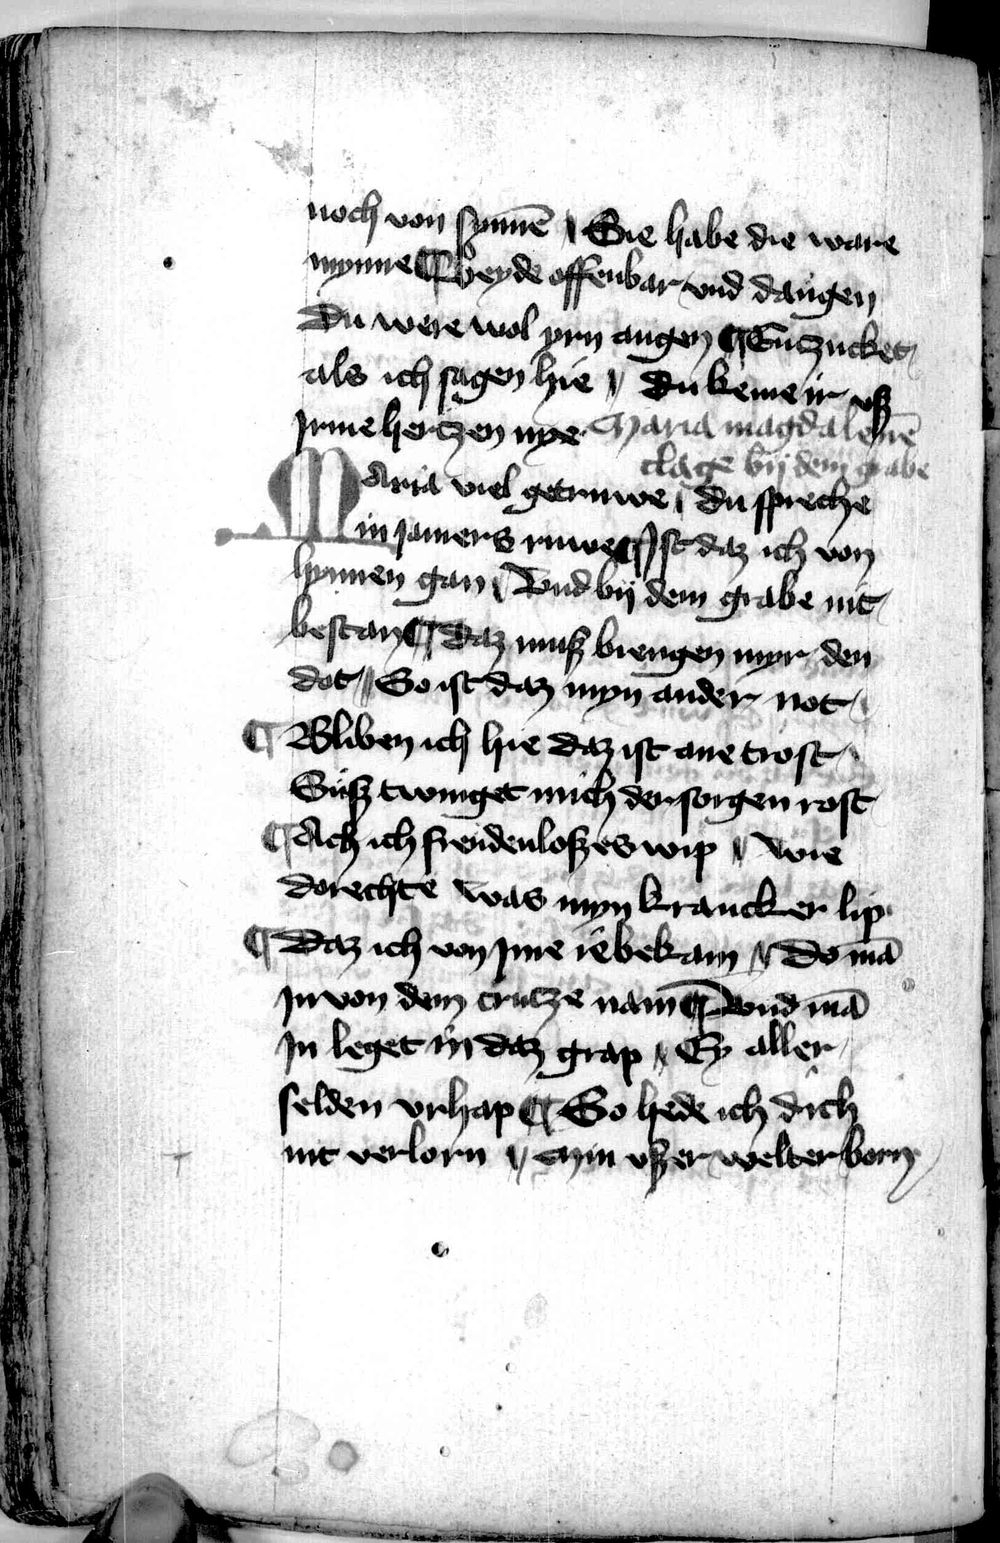 noch von synnē // Sie habe die ware
mynne ¶ Beyde offenbar vnd daugen
Du were wol yrn augen ¶ Entzucket
als ich sagen hie // du keme ir vß
Irme hertzen nye Maria magdalenē
clage bij dem grabe
Maria viel getruwe // du spreche
in jamers ruwe ¶ Ist daz ich von
hynnen gan // Vnd bij dem grabe nit
bestan ¶ Daz muß brengen myr den
dot // So ist daz myn ander not
¶ Bliben ich hie daz ist ane trost
Suß twinget mich der sorgen rost
¶ Ach ich freudenloßes wip // wie
dorechte was myn krancker lip
¶ Daz ich von Ime ie bekam // Do mā
In von dem crutze nam ¶ Vnd mā
In leget in daz grap // Ey aller
selden vrhap ¶ So hede ich dich
nit verlorn // Min vßer welter born